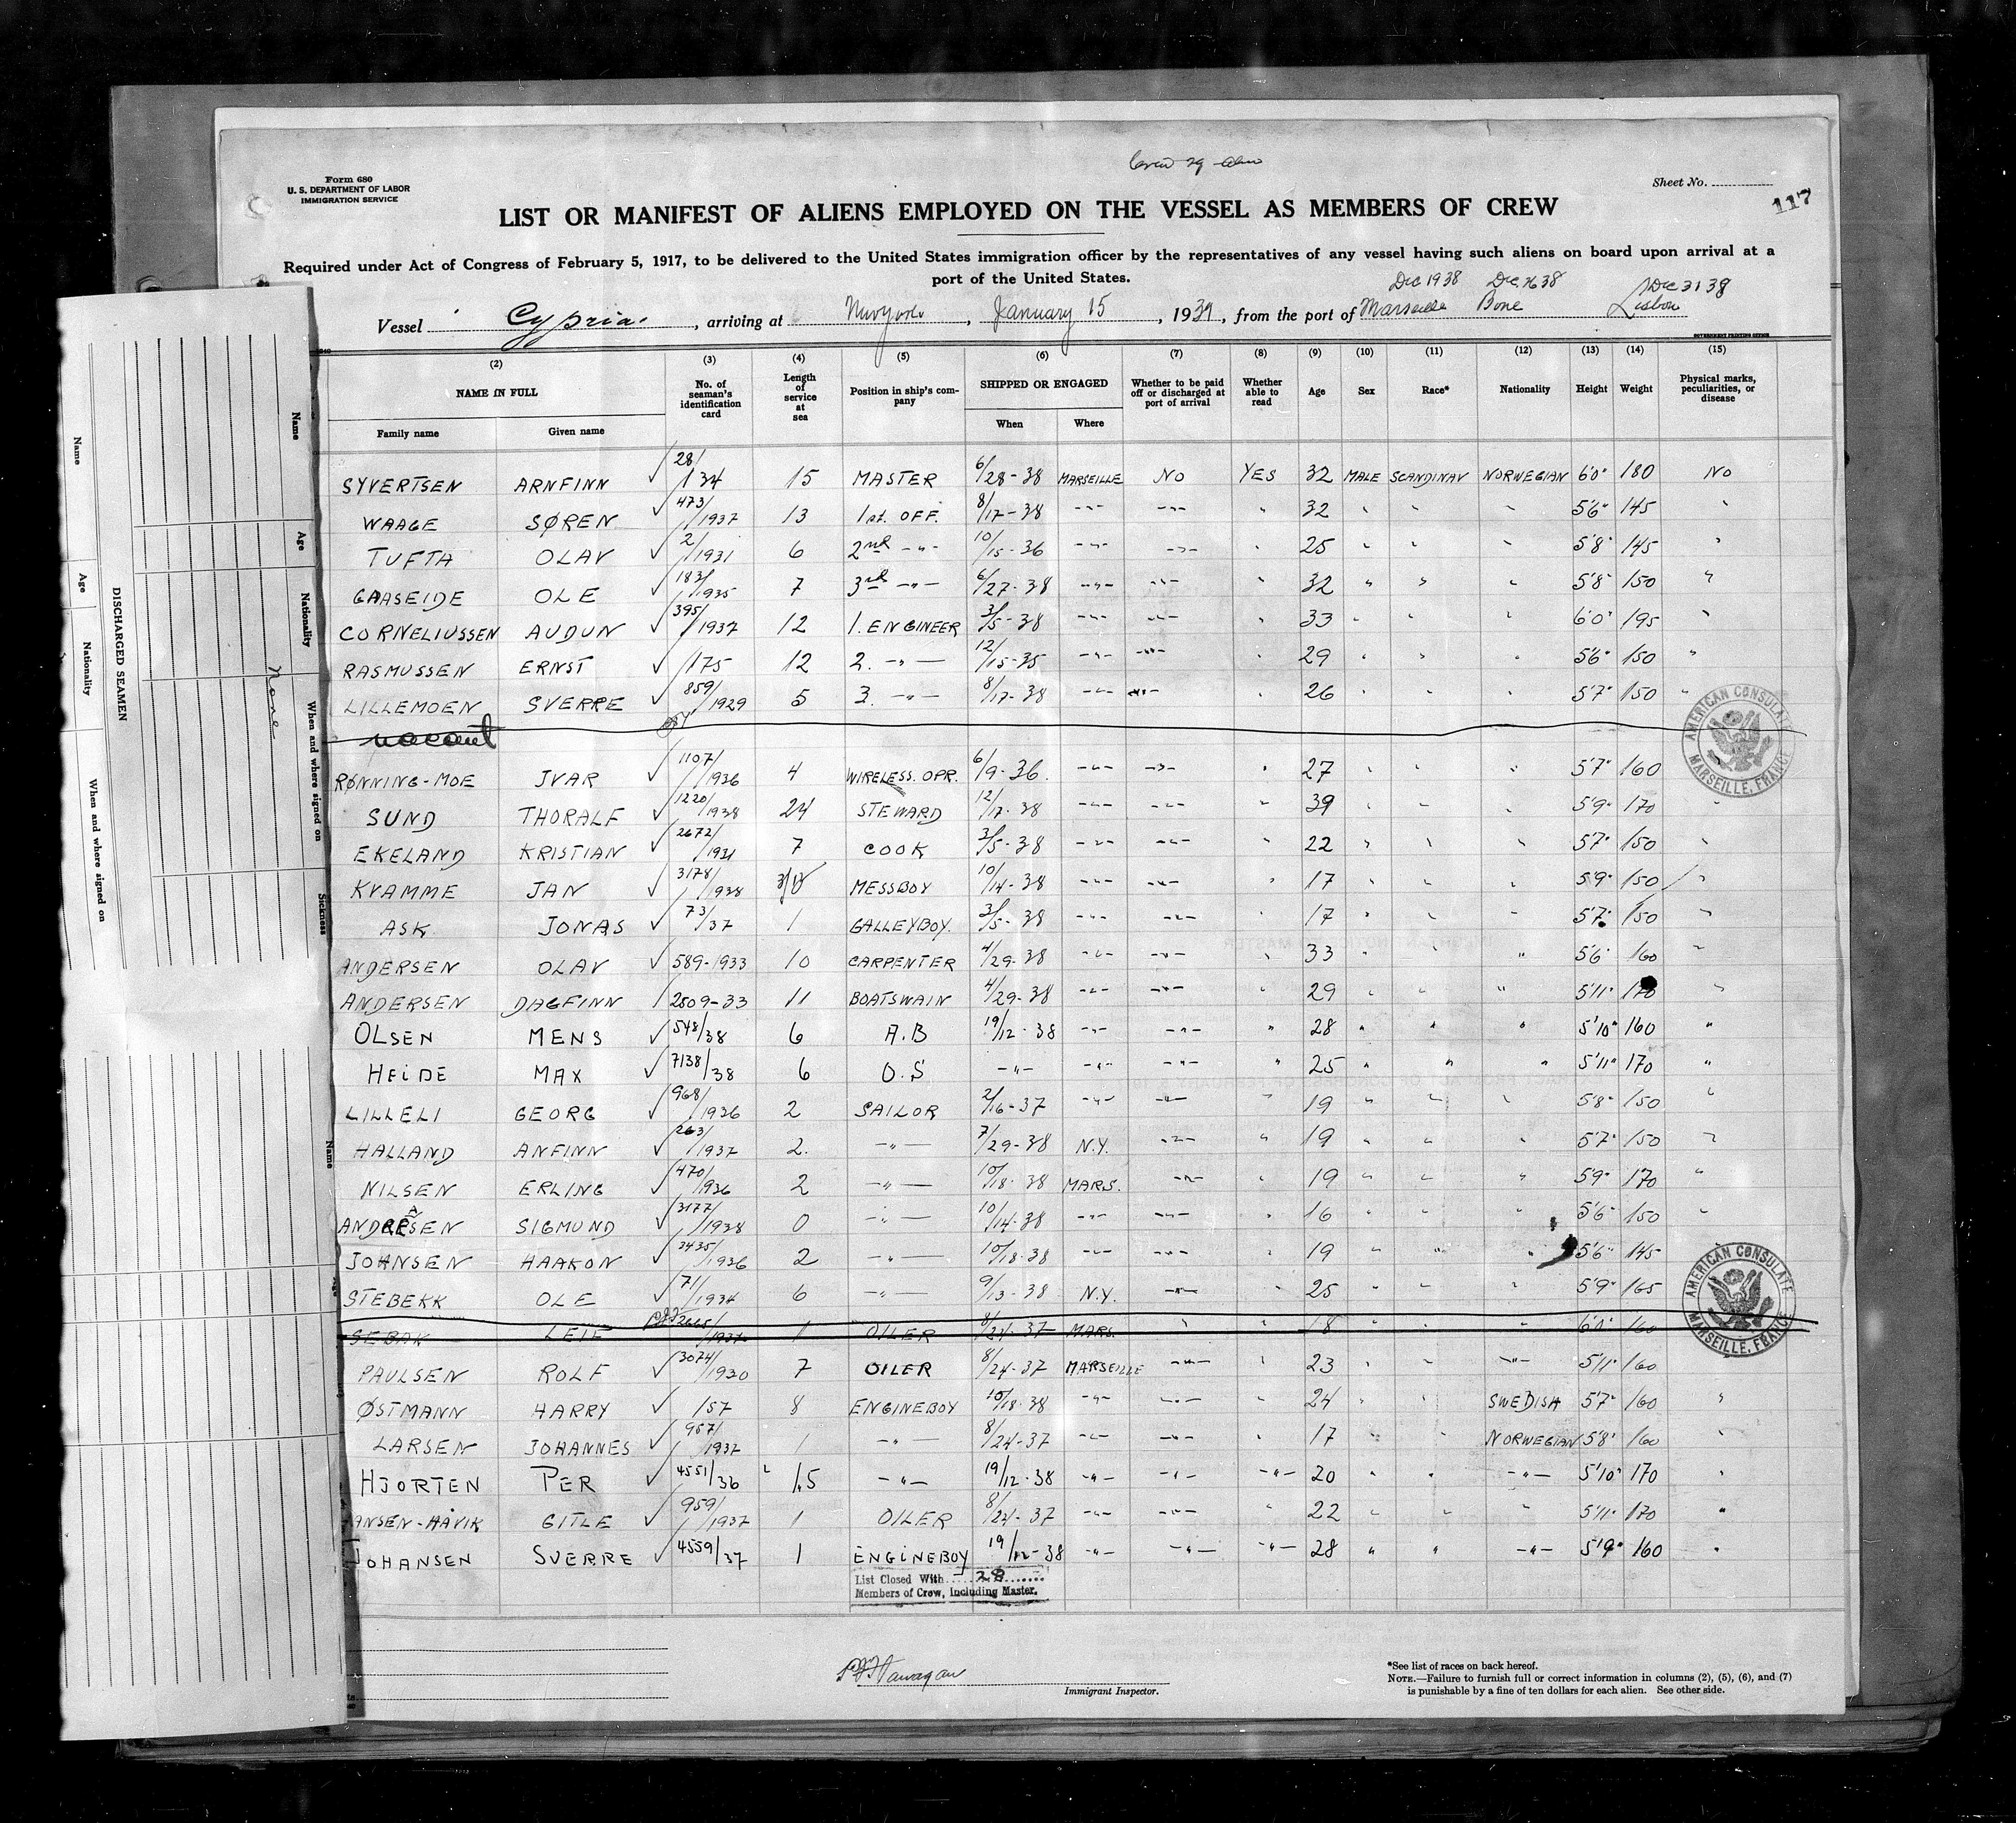 Crew 29
Form 680
U. S. DEPARTMENT OF LABOR
IMMIGRATION SERVICE
Sheet No.
117
LIST OR MANIFEST OF ALIENS EMPLOYED ON THE VESSEL AS MEMBERS OF CREW
Required under Act of Congress of February 5, 1917, to be delivered to the United States immigration officer by the representatives of any vessel having such aliens on board upon arrival at a
port of the United States.
Dec 19 38 Dec 26 38 Dec 31 38
Vessel Cypria, arriving at Newyork, January 15, 1939, from the port of Marseille Bone Lisbon
(2) (3) (4) (5) (6) (7) (8) (9) (10) (11) (12) (13) (14) (15)
NAME IN FULL
Family name Given name
No. of seaman's identification card
Length of service at sea
Position in ship's company
SHIPPED OR ENGAGED
When Where
Whether to be paid off or discharged at port of arrival
Whether able to read
Age Sex Race* Nationality Height Weight
Physical marks, peculiarities, or disease
SYVERTSEN ARNFINN ✓ 28/134 15 MASTER 6/28-38 MARSEILLE NO YES 32 MALE SCANDINAV NORWEGIAN 6'0" 180 NO
WAAGE SØREN ✓ 473/1937 13 1st. OFF. 8/17-38 -"- -"- " 32 " " " 5'6" 145 "
TUFTA OLAV ✓ 2/1931 6 2nd -"- 10/15-36 -"- -"- " 25 " " " 5'8" 145 "
GAASEIDE OLE ✓ 183/1935 7 3rd -"- 6/27-38 -"- -"- " 32 " " " 5'8" 150 "
CORNELIUSSEN AUDUN ✓ 395/1937 12 1. ENGINEER 3/5-38 -"- -"- " 33 " " " 6'0" 195 "
RASMUSSEN ERNST ✓ /175 12 2. -"- 12/15-35 -"- -"- " 29 " " " 5'6" 150 "
LILLEMOEN SVERRE ✓ 859/1929 5 3. -"- 8/17-38 -"- -"- " 26 " " " 5'7" 150 "
vacant
RØNNING-MOE IVAR ✓ 1107/1936 4 WIRELESS. OPR. 6/9-36. -"- -"- " 27 " " " 5'7" 160 "
SUND THORALF ✓ 1220/1938 24 STEWARD 12/17-38 -"- -"- " 39 " " " 5'9" 170 "
EKELAND KRISTIAN ✓ 2672/1931 7 COOK 3/5-38 -"- -"- " 22 " " " 5'7" 150 "
KVAMME JAN ✓ 3178/1938 MESSBOY 10/14-38 -"- -"- " 17 " " " 5'9" 150 "
ASK JONAS ✓ 73/37 1 GALLEYBOY. 3/5-38 -"- -"- " 17 " " " 5'7" 150 "
ANDERSEN OLAV ✓ 589-1933 10 CARPENTER 4/29-38 -"- -"- " 33 " " 5'6" 160 "
ANDERSEN DAGFINN ✓ 2509-33 11 BOATSWAIN 4/29-38 -"- -"- " 29 " " " 5'11" 170 "
OLSEN MENS ✓ 548/38 6 A.B 19/12-38 -"- -"- " 28 " " " 5'10" 160 "
HEIDE MAX ✓ 7138/38 6 O.S -"- -"- -"- " 25 " " " 5'11" 170 "
LILLELI GEORG ✓ 968/1936 2 SAILOR 2/16-37 -"- -"- " 19 " " " 5'8" 150 "
HALLAND ANFINN ✓ 263/1937 2. -"- 7/29-38 N.Y. -"- " 19 " " " 5'7" 150 "
NILSEN ERLING ✓ 470/1936 2 -"- 10/18-38 MARS. -"- " 19 " " " 5'9" 170 "
ANDREASEN SIGMUND ✓ 3177/1938 0 -"- 10/14-38 -"- -"- " 16 " " " 5'6" 150 "
JOHNSEN HAAKON ✓ 3435/1936 2 -"- 10/18-38 -"- -"- " 19 " " " 5'6" 145 "
STEBEKK OLE ✓ 71/1934 6 -"- 9/13-38 N.Y. -"- " 25 " " " 5'9" 165
SEBAK LEIF 2665/1937 1 OILER 8/24-37 MARS. " " 18 " " " 6'0" 160
PAULSEN ROLF ✓ 3074/1930 7 OILER 8/24-37 MARSEILLE -"- " 23 " " -"- 5'11" 160
ØSTMANN HARRY ✓ 157 8 ENGINEBOY 10/18-38 -"- -"- " 24 " " SWEDISH 5'7" 160 "
LARSEN JOHANNES ✓ 957/1937 1 -"- 8/24-37 -"- -"- " 17 " " NORWEGIAN 5'8" 160 "
HJORTEN PER ✓ 4551/36 1.5 -"- 19/12-38 -"- -"- -"- 20 " " -"- 5'10" 170 "
ANSEN-HAVIK GITLE ✓ 959/1937 1 OILER 8/24-37 -"- -"- " 22 " " " 5'11" 170 "
JOHANSEN SVERRE ✓ 4559/37 1 ENGINEBOY 19/12-38 -"- -"- -"- 28 " " -"- 5'9" 160 "
List Closed With 28
Members of Crew, including Master.
AMERICAN CONSULATE
MARSEILLE, FRANCE
AMERICAN CONSULATE
MARSEILLE, FRANCE
Immigrant Inspector.
*See list of races on back hereof.
NOTE.—Failure to furnish full or correct information in columns (2), (5), (6), and (7)
is punishable by a fine of ten dollars for each alien. See other side.
DISCHARGED SEAMEN
Name
Age
Nationality
When and where signed on
Name
Age
Nationality
When and where signed on
Sickness
Name
None